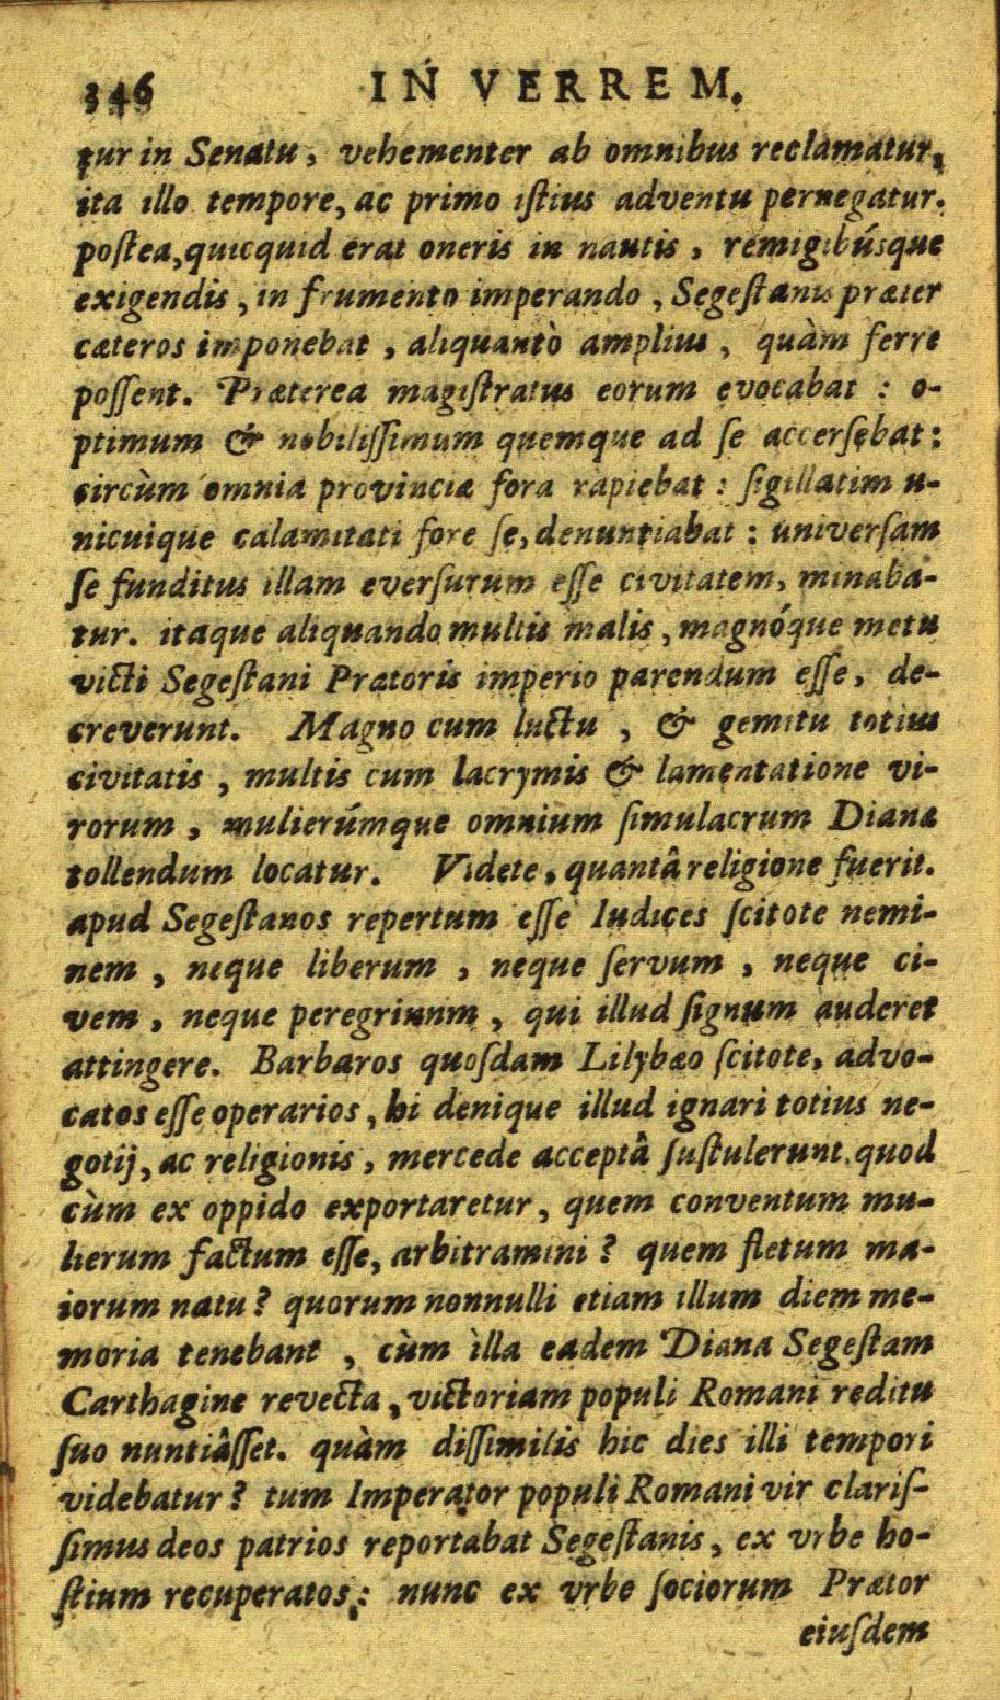 346 IN VERREM.
tur in Senatu, vehementer ab omnibus reclamatur,
ita illo tempore, ac primo iſtius adventu pernegatur.
poſtea, quicquid erat oneris in nautis, remigibúsque
exigendis, in frumento imperando, Segeſtanis præter
cæteros imponebat, aliquantò amplius, quàm ferre
poſſent. Præterea magiſtratus eorum evocabat: o-
ptimum & nobiliſſimum quemque ad ſe accerſebat:
circùm omnia provinciæ fora rapiebat: ſigillatim u-
nicuique calamitati fore ſe, denuntiabat: univerſam
ſe funditus illam everſurum eſſe civitatem, minaba-
tur. itaque aliquando multis malis, magnóque metu
victi Segeſtani Prætoris imperio parendum eſſe, de-
creverunt. Magno cum luctu, & gemitu totius
civitatis, multis cum lacrymis & lamentatione vi-
rorum, mulierúmque omnium ſimulacrum Dianæ
tollendum locatur. Videte, quantâ religione fuerit.
apud Segeſtanos repertum eſſe Iudices ſcitote nemi-
nem, neque liberum, neque ſervum, neque ci-
vem, neque peregriunm, qui illud ſignum auderet
attingere. Barbaros quoſdam Lilybæo ſcitote, advo-
catos eſſe operarios, hi denique illud ignari totius ne-
gotij, ac religionis, mercede acceptâ ſuſtulerunt. quod
cùm ex oppido exportaretur, quem conventum mu-
lierum factum eſſe, arbitramini? quem fletum ma-
iorum natu? quorum nonnulli etiam illum diem me-
moria tenebant, cùm ìlla eadem Diana Segeſtam
Carthagine revecta, victoriam populi Romani reditu
ſuo nuntiâſſet. quàm diſſimilis hic dies illi tempori
videbatur? tum Imperator populi Romani vir clariſ-
ſimus deos patrios reportabat Segeſtanis, ex vrbe ho-
ſtium recuperatos: nunc ex vrbe ſociorum Prætor
eiuſdem